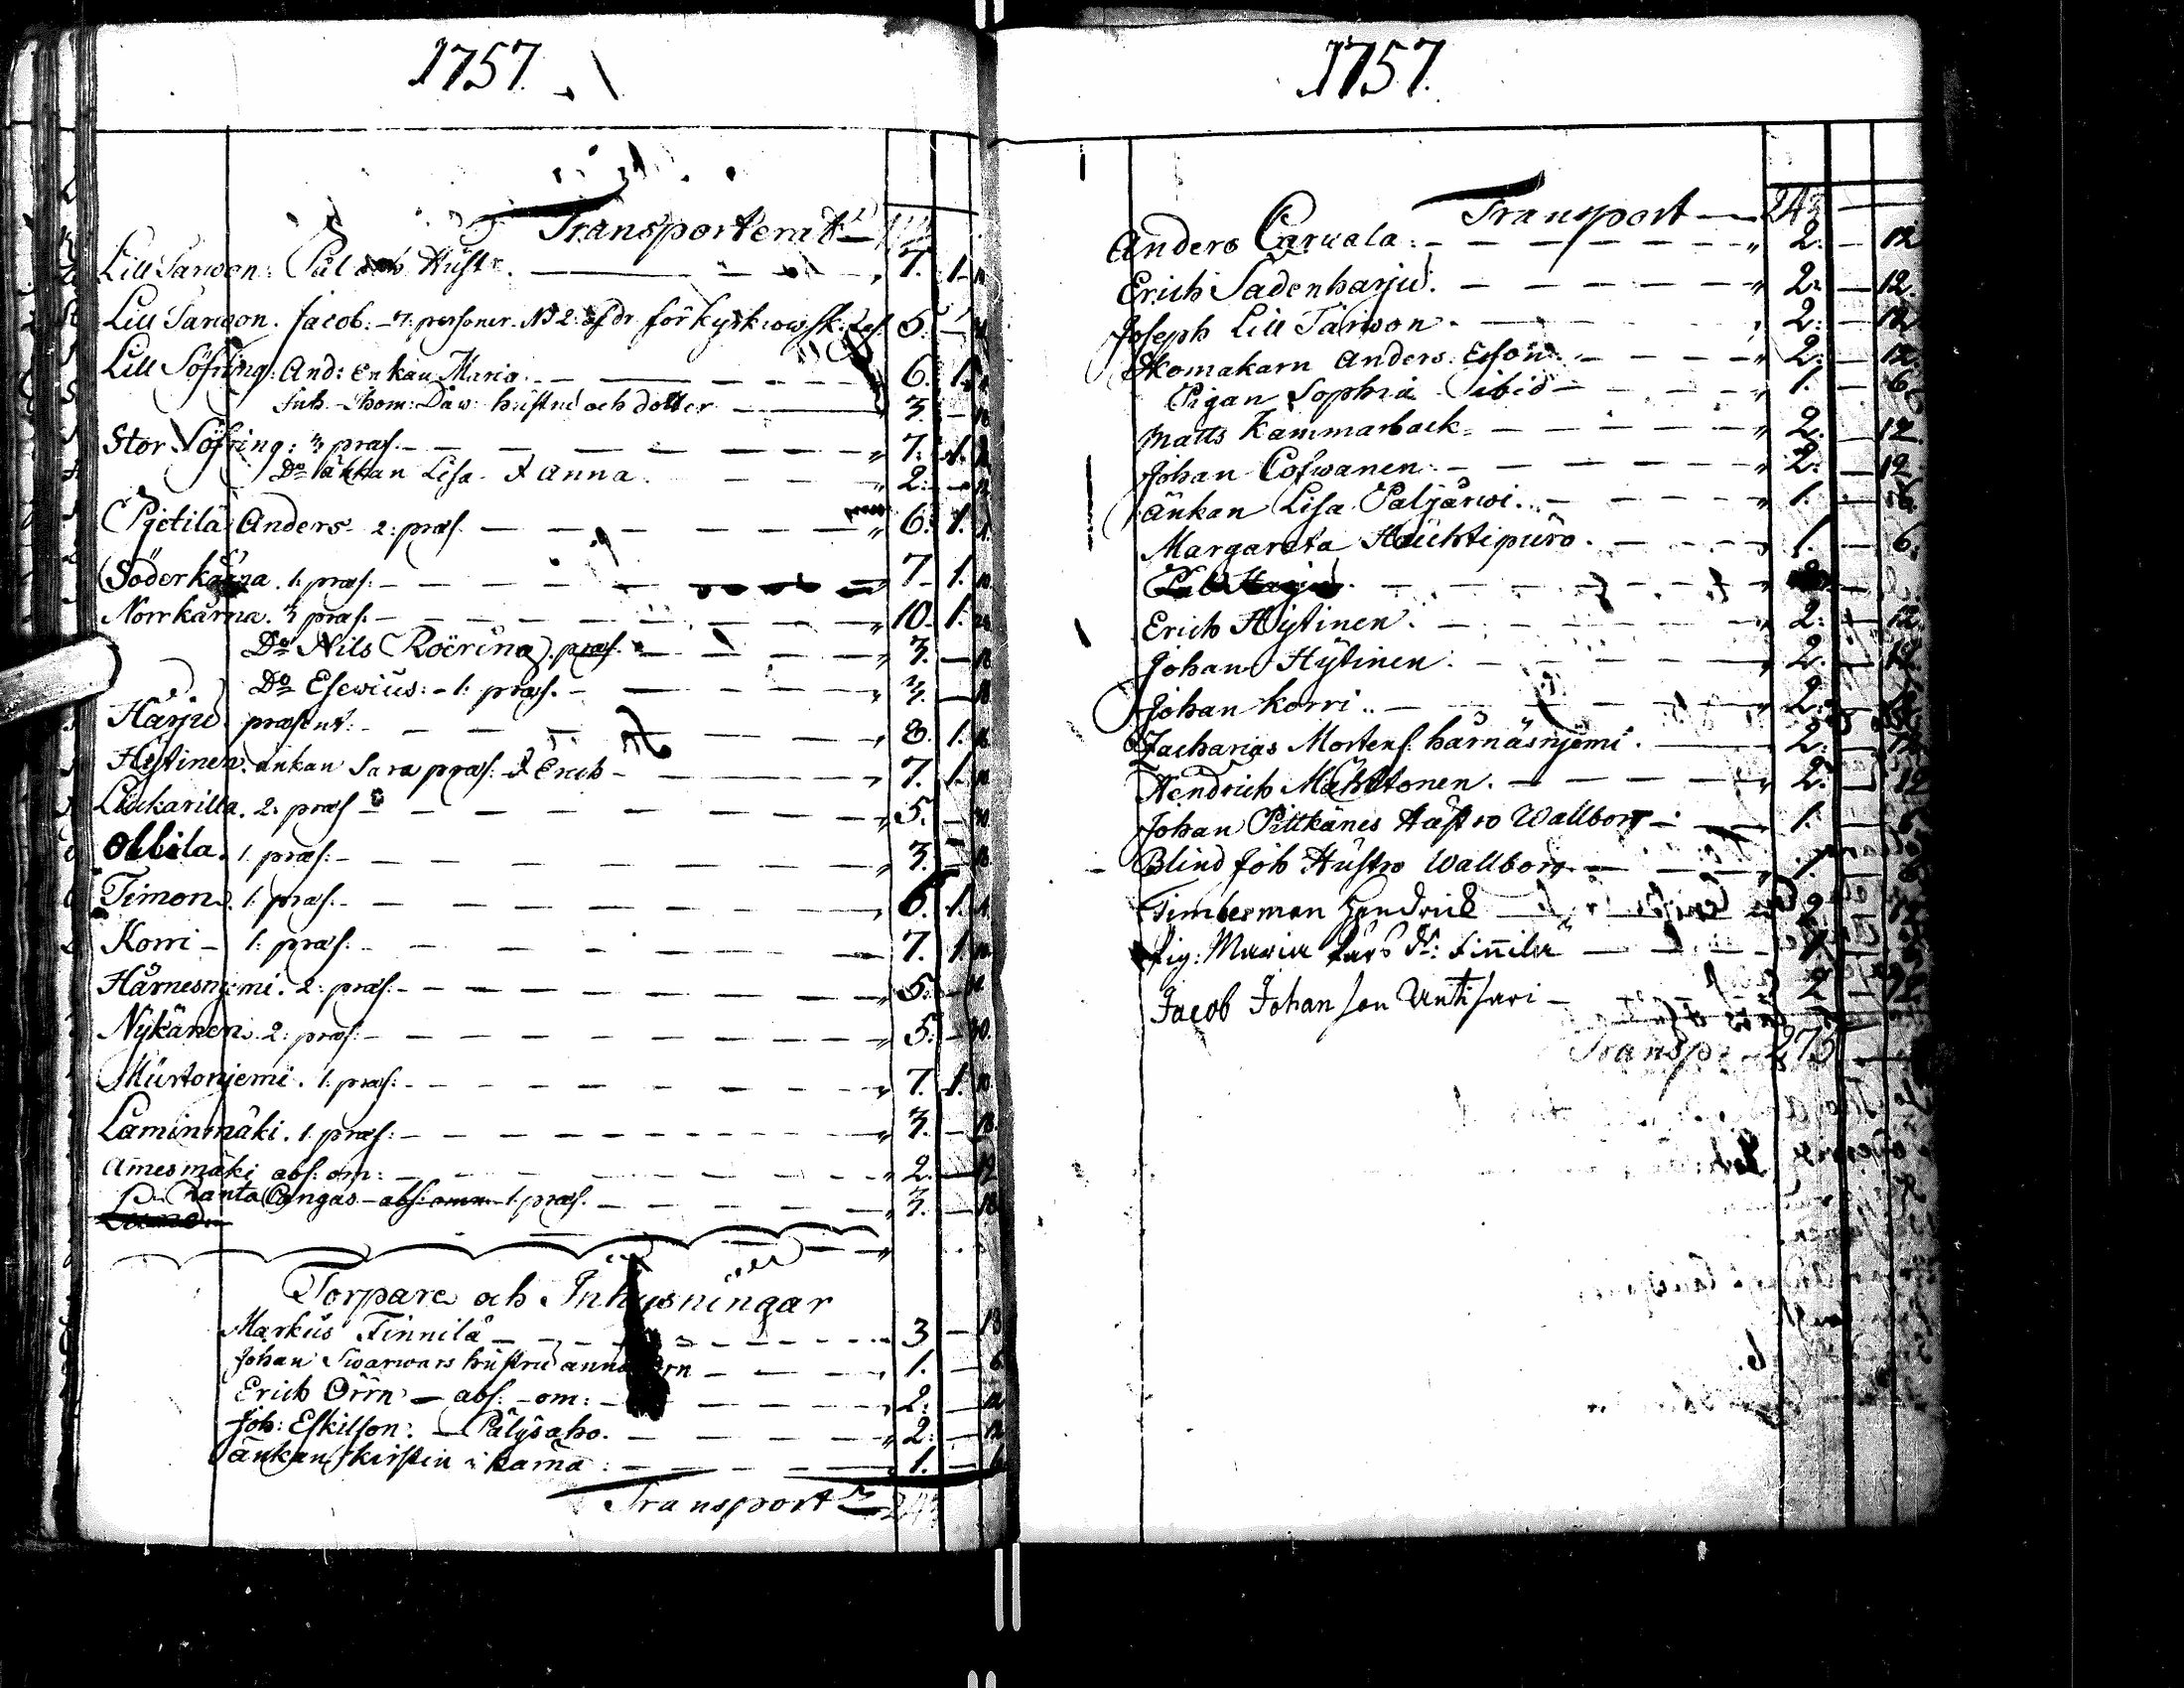 1757.
Transporterat
Lill Sarwon. Pål och Hustr. 7. 1.
Lill Sarwon. Jacob. 7. personer. 5.
Lill Söfring. And: Enkan Maria. 6. 1.
Inh. Thom: Daw: hustru och dotter 3. 18
Stor Söfring: 3 præs. 7. 1.
Do änkan Lisa. & Anna 2. 12
Pjetilä Anders 2: præs. 6. 1.
Söderkärna. 1: præs: 7. 1. 10
Norrkärna. 3 præs. 10. 1. 24
Do Nils Roering. præs. 3. 18
Do Esewius: 1: præs. 3. 18
Harju præsent: 8. 1. 16
Hytinen. änkan Sara præs: & Erich 7. 1. 10
Luckarilla. 2: præs 5. 30
Ollila. 1. præs: 3. 18
Timon. 1: præs: 6. 1.
Korri 1: præs: 7. 1. 10
Härnesniemi. 2: præs: 5. 30
Nykänen. 2: præs: 5. 30
Murtonjemi. 1: præs: 7. 1. 10
Laminmäki. 1. præs: 3. 18
Amesmäki abs: om: 2. 12
Ranta Cangas 1 præs. 3. 18
Torpare och Inhysningar
Markus Finnilä 3 18
Johan Swarwars hustru anna 1. 6
Erich Orrn abs: om: 2. 12
Joh: Eskilson. Pälysaho. 2. 12
änkan Kirstin i Karna 1. 6
Transport 243
1757.
Transport 243
Anders Carwala 2. 12
Erich Sadenharju. 2. 12
Joseph Lill Sarwon 2. 12
Skomakarn Anders Ersson 2. 12
Pigan Sophia ibid 1. 6
Matts Kammarback 2. 12
Johan Coswanen 2. 12
änkan Lisa Paljärwi. 1. 6
Margareta Hauhtipuro. 1. 6
Erich Hytinen 2. 12
Johan Hytinen. 2. 12
Johan Korri 2. 12
Zacharias Mortens: härnäsnjemi. 2. 12
Hendrich Mähttonen. 2. 12
Johan Pittkänes Hustro Wallborg 1. 6
Blind Joh Hustro Wallborg 1. 6
Timberman Hendrick 2
Pig: Maria Lars Dr: Finnilä 1
Jacob Johanson Untisari 2 12
Transp 275